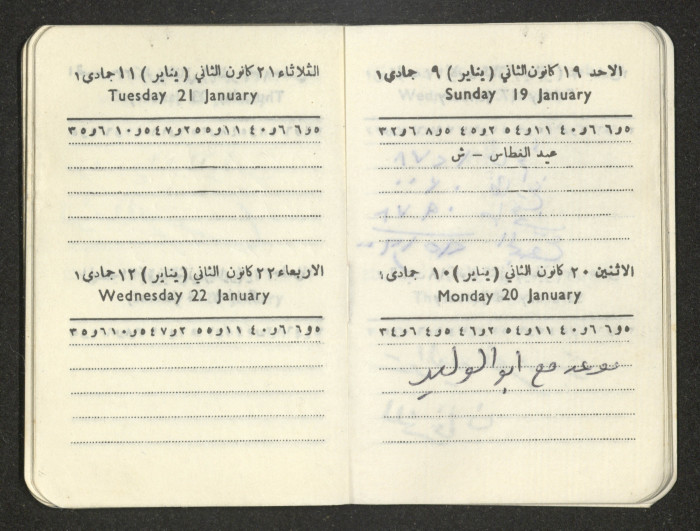 الاحد ١٩ كانون الثاني (يناير) ٩ جمادى ١
Sunday 19 January
٥و٦ ٦و٤٠ ١١و٥٤ ٢و٤٥ ٥و٨ ٦و٣٢
عيد الغطاس – ش
الاثنين ٢٠ كانون الثاني (يناير) ١٠ جمادى ١
Monday 20 January
٥و٦ ٦و٤٠ ١١و٥٤ ٢و٤٦ ٦و٣٤
موعد مع ابو الوليد
الثلاثاء ٢١ كانون الثاني (يناير) ١١ جمادى ١
Tuesday 21 January
٥و٦ ٦و٤٠ ١١و٥٥ ٢و٤٧ ٥و١٠ ٦و٣٥
الاربعاء ٢٢ كانون الثاني (يناير) ١٢ جمادى ١
Wednesday 22 January
٥و٦ ٦و٤٠ ١١و٥٥ ٢و٤٧ ٥و١٠ ٦و٣٥